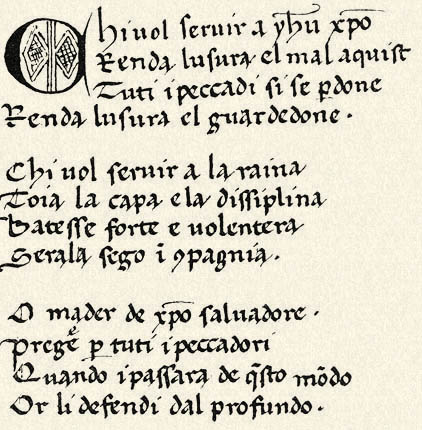 Chi uol seruir a yhū xp̄o
Renda lusura el mal aquist
Tuti i peccadi si se ꝑdone
Renda lusura el guardedone.
Chi uol seruir a la raina
Toia la capa e la dissiplina
Batesse forte e uolentera
Serala sego ī ꝯpagnia.
O mader de xp̄o saluadore.
Pregē ꝑ tuti i peccadori
Quando i passara de q̄sto mōdo
Or li defendi dal profundo.